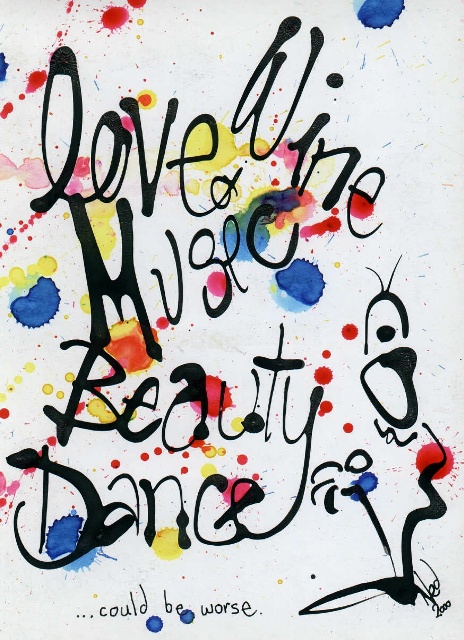 Love & Wine
Music
Beauty
Dance
...could be worse.
2000